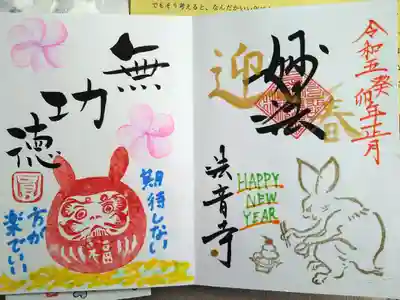 でもそう考えると、なんだかいい
令和五癸卯年正月
迎春
妙法
法音寺
HAPPY
NEW
YEAR
無
功
徳
期待しない
方が
楽でいい
福